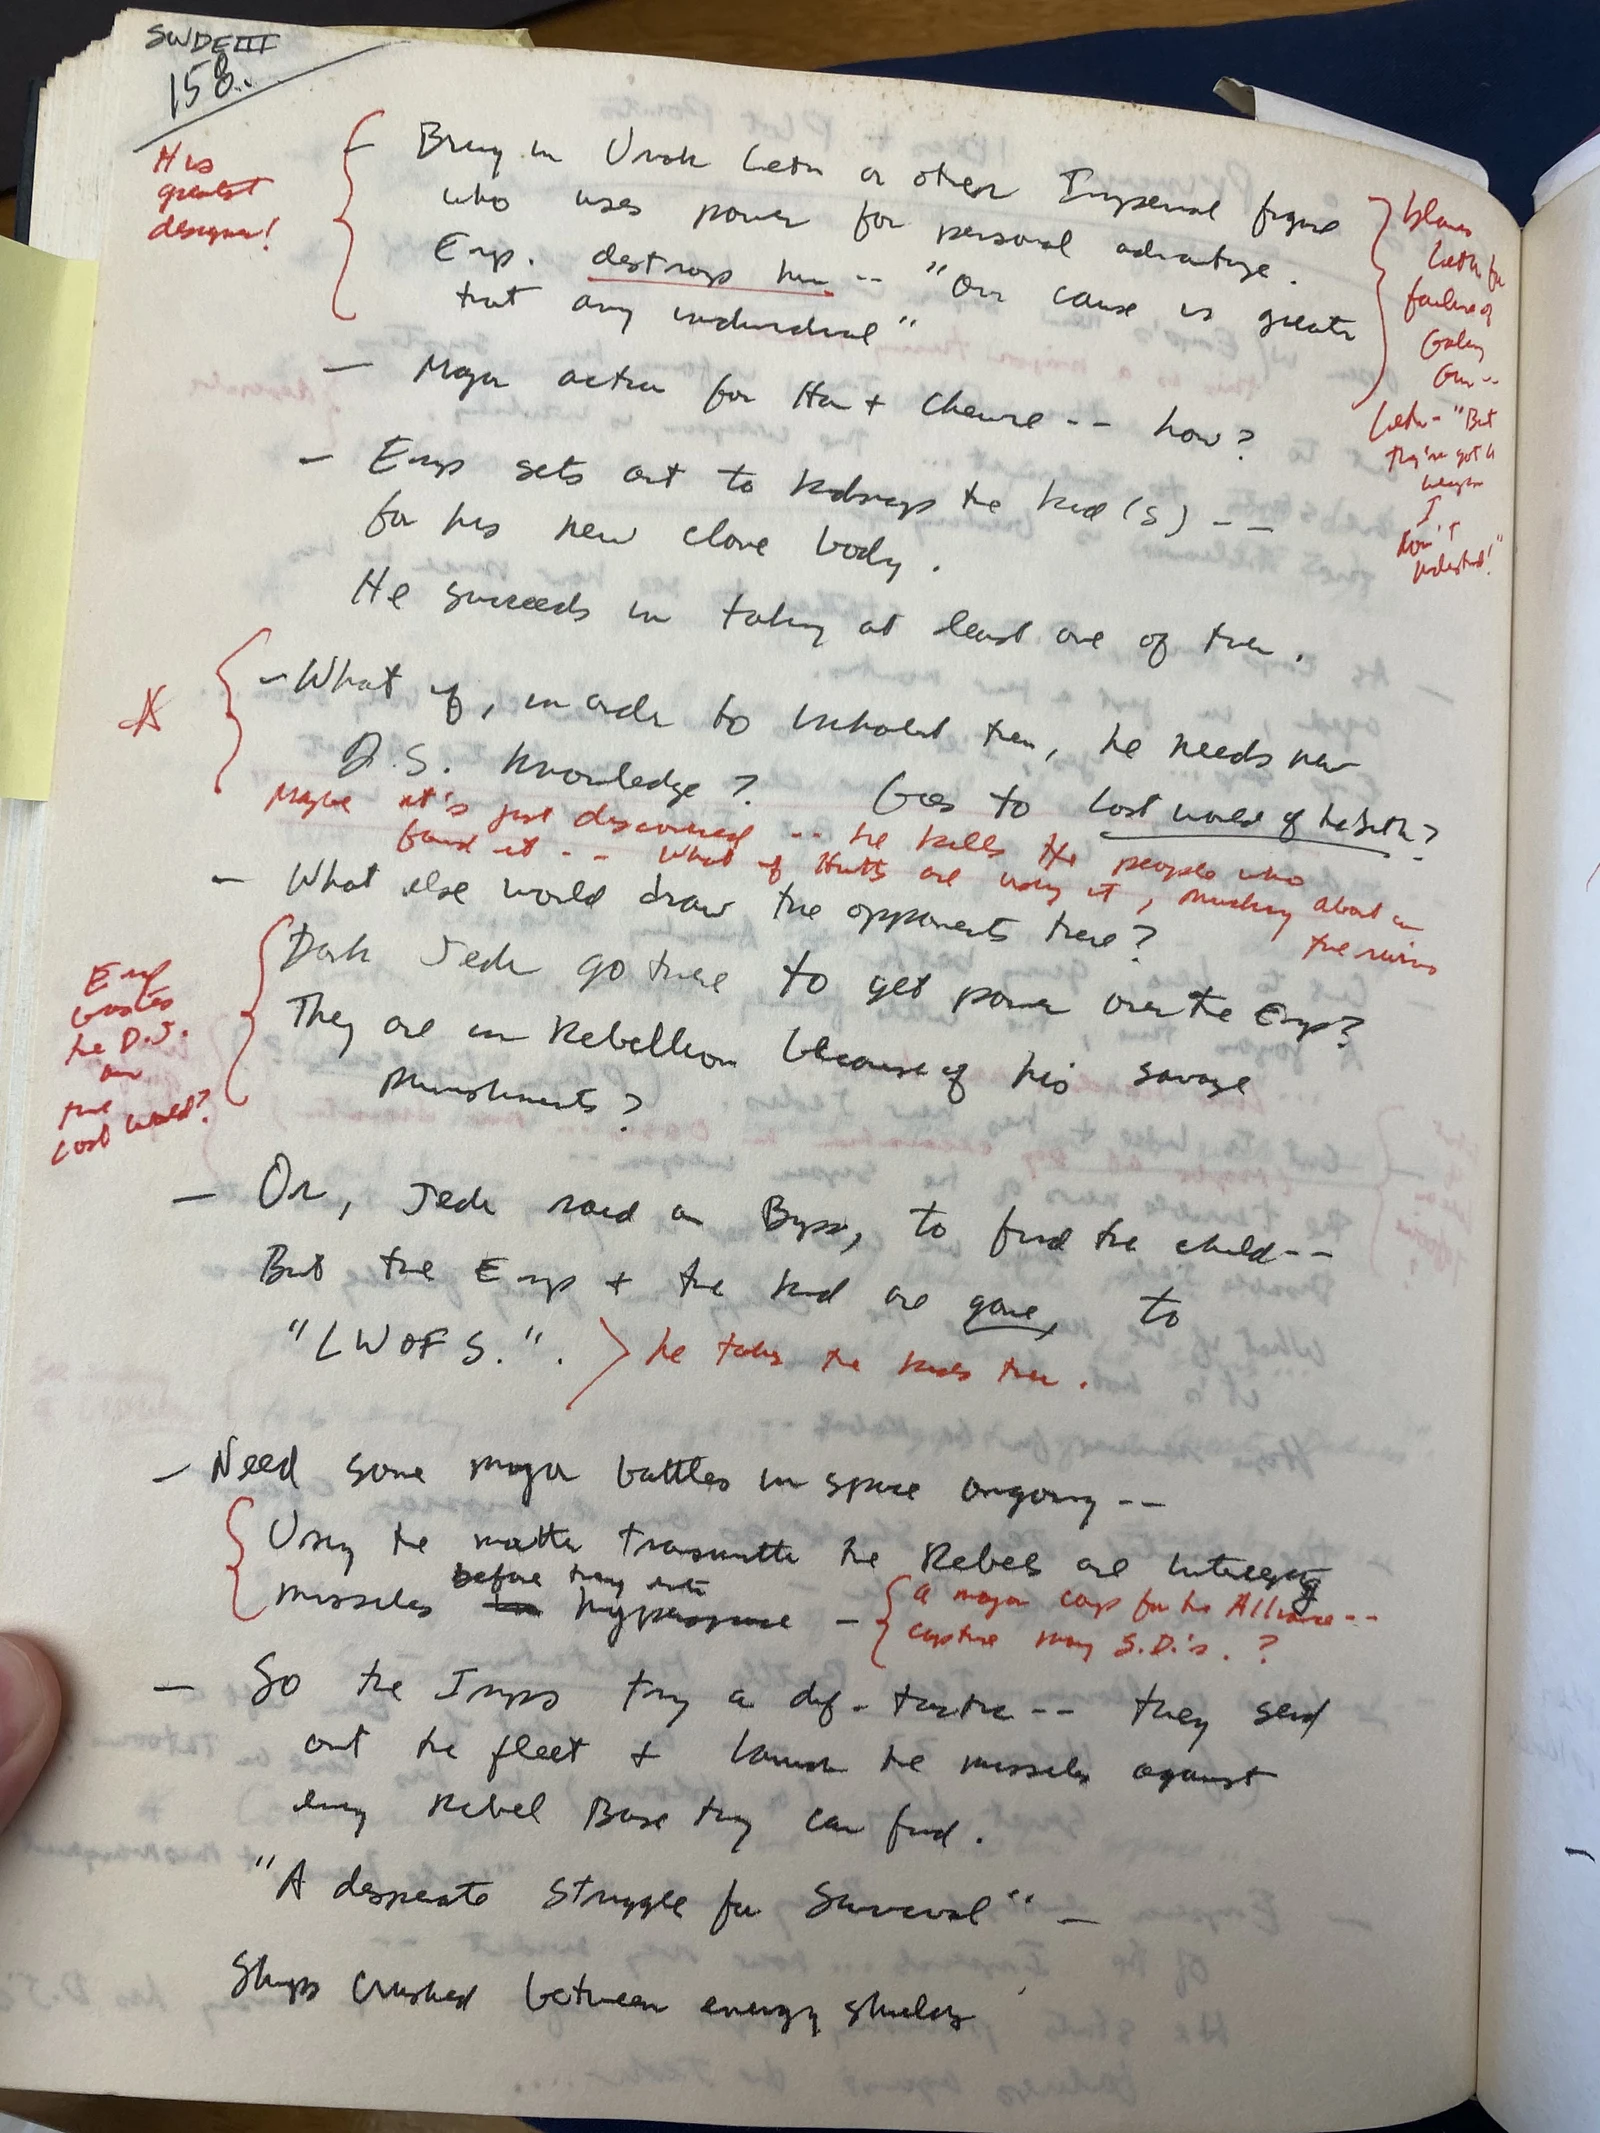 SWDEIII
158.
His
greatest
designer!
– Bring in Umak Leth or other Imperial figure
who uses power for personal advantage.
Emp. destroys him -- "Our cause is greater
that any individual"
blames
Leth for
failure of
Galaxy
Gun --
Leth - "But
they've got a
weapon
I
don't
understand!"
– Major action for Han + Chewie -- how?
– Emp sets out to kidnap the kid(s) --
for his new clone body.
He succeeds in taking at least one of them.
– What if, in order to inhabit them, he needs new
D.S. knowledge? Goes to Lost world of the Sith?
Maybe it's just discovered -- he kills the people who
found it -- What if Hutts are using it, mucking about in
the ruins
– What else would draw the opponents there?
Dark Jedi go there to get power over the Emp?
They are in Rebellion because of his savage
punishments?
Emp
wastes
the D.J.
on
the
Lost World?
– Or, Jedi raid on Byss, to find the child --
But the Emp + the kid are gone, to
"LWOFS.". > he takes the kids there.
– Need some major battles in space ongoing --
Using the matter transmitter the Rebels are intercepting
missiles before they enter hyperspace –
a major coup for the Alliance --
capture many S.D.'s. ?
– So the Imps try a dif. tactic -- they send
out the fleet + launch the missiles against
every Rebel Base they can find.
"A desperate struggle for Survival" –
Ships crushed between energy shields